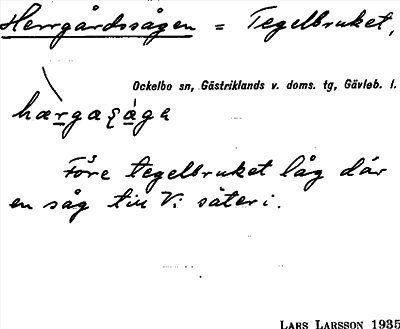 Herrgårdssågen = Tegelbruket,
Ockelbo sn, Gästriklands v. doms. tg, Gävleb. l.
Före tegelbruket låg där
en såg till Vi säteri.
LARS LARSSON 1935